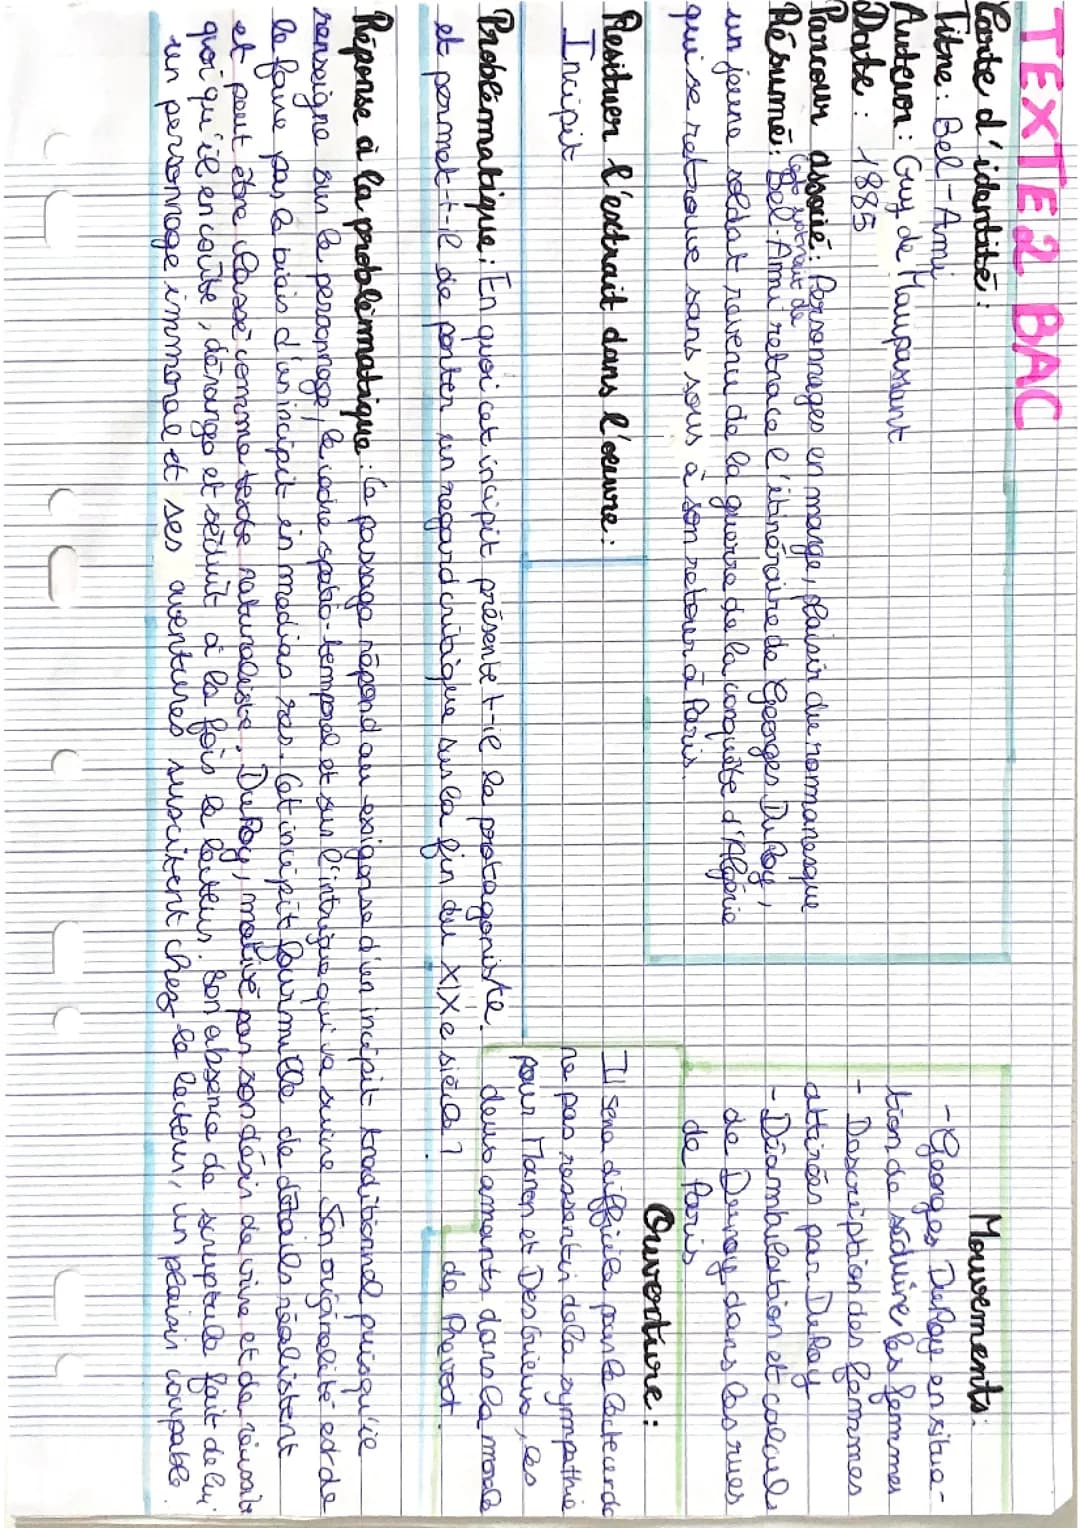 TEXTE 2 BAC
Carte d'identité :
Titre : Bel-Ami
Auteur : Guy de Maupassant
Date : 1885
Parcour associé : Personnages en marge, plaisir du romanesque
C'est portrait de
Résumé : Bel-Ami retrace l'itinéraire de Georges DuRoy,
un jeune soldat revenu de la guerre de la conquête d'Algérie
qui se retrouve sans sous à son retour à Paris.
Mouvements :
- Georges DuRoy en situa-
tion de séduire les femmes
- Description des femmes
attirées par DuRoy
- Déambulation et calculs
de Duroy dans les rues
de Paris
Resituer l'extrait dans l'œuvre :
Incipit
Ouverture :
Il sera difficile pour le lecteur de
ne pas ressentir de la sympathie
pour Manon et Des Grieux, les
deux amants dans la morale
de Prevost.
Problématique : En quoi cet incipit présente t-il le protagoniste
et permet-t-il de porter un regard critique sur la fin du XIXe siècle ?
Réponse à la problématique : Ce passage répond au exigense d'un incipit traditionnel puisqu'il
renseigne sur le personnage, le cadre spatio-temporel et sur l'intrigue qui va suivre. Son originalité est de
le faire par le biais d'un incipit in medias res. Cet incipit fourmille de détails réalistent
et peut être classé comme texte naturaliste. DuRoy, motivé par son désir de vivre et de réussir
quoi qu'il en coûte, dérange et séduit à la fois le lecteur. Son absence de scruptule fait de lui
un personnage immoral et ses aventures suscitent chez le lecteur, un plaisir coupable.